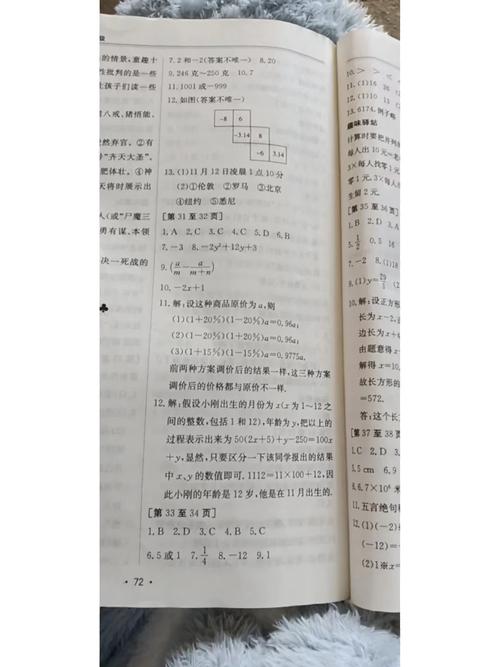 的情景,童趣十
性批判的是一些
上孩子们谈一些
八戒,猪悟能,
然弃官。②有
"齐天大圣"。
肥体壮。④神
天将时展示出
人(或"尸魔三
勇有谋、本领
决一死战的
♣
7.2和-2(答案不唯一) 8.20
9.246克~250克 10.7
11.1001或-999
12.如图(答案不唯一)
-8 6
-3.14 8
-6 3.14
13.(1)11月12日凌晨1点10分
(2)①伦敦 ②罗马 ③北京
④纽约 ⑤悉尼
[第31至32页]
1.A 2.C 3.C 4.C 5.D 6.B
7.-3 8.-2y²+12y+3
9.(a/m - a/(m+n))
10.-2x+1
11.解:设这种商品原价为a,则
(1)(1+20%)(1-20%)a=0.96a;
(2)(1-20%)(1+20%)a=0.96a;
(3)(1+15%)(1-15%)a=0.9775a.
前两种方案调价后的结果一样,这三种方案
调价后的价格都与原价不一样.
12.解:假设小刚出生的月份为x(x为1~12之
间的整数,包括1和12),年龄为y,把以上的
过程表示出来为50(2x+5)+y-250=100x
+y,显然,只要区分一下该同学报出的结果
中x、y的数值即可.1112=11×100+12,因
此小刚的年龄是12岁,他是在11月出生的.
[第33至34页]
1.B 2.D 3.C 4.B 5.C
6.5或1 7.1/4 8.-12 9.1
· 72 ·
10.> > <
11.(1)16
12.(1)10 13
13.6174.例子略
趣味驿站
计算时要把井列
每人出10元=老
零1元,3×每人
生留2元.
[第35至36页]
1.B 2.D 3.A
5.1/2 0.5 16
7.-2 8.(1)8
9.(1)y=29/5
10.解:设正方形
长为x-2,
边长为x+
由题意得
解得x=10.
故长方形的
=572.
答:这个长
[第37至38页]
1.C 2.D 3.
5.5 cm 6.9
8.6.7×10⁶米
11.五言绝句
12.(1)(-2)
(-12)=
(2)1※x=